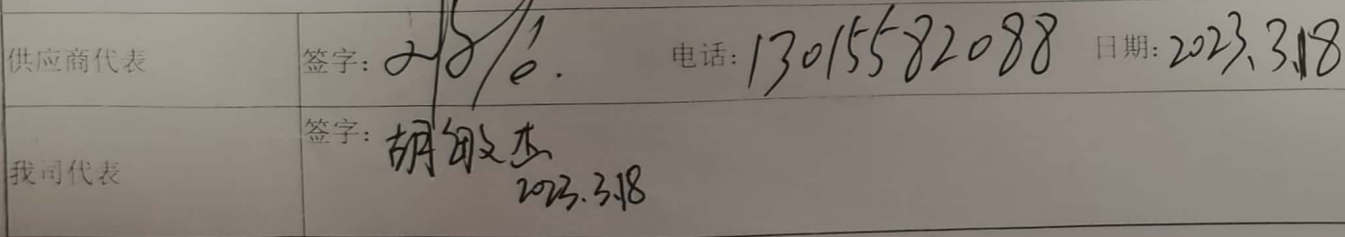 供应商代表 签字: 电话:13015582088 日期:2023.3.18
签字:胡敏杰
我司代表
2023.3.18